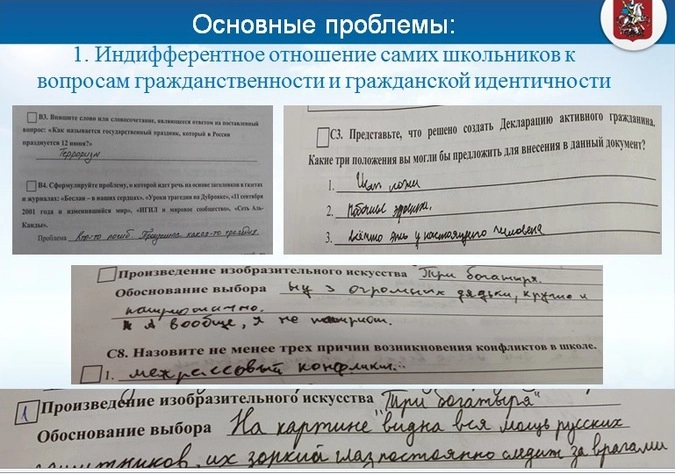 Основные проблемы:
1. Индифферентное отношение самих школьников к
вопросам гражданственности и гражданской идентичности
В3. Впишите слово или словосочетание, являющееся ответом на поставленный
вопрос: «Как называется государственный праздник, который в России
празднуется 12 июня?»
Терроризм
В4. Сформулируйте проблему, о которой идет речь на основе заголовков в газетах
и журналах: «Беслан – в наших сердцах», «Уроки трагедии на Дубровке», «11 сентября
2001 года и изменившийся мир», «ИГИЛ и мировое сообщество», «Сеть Аль-
Каиды».
Проблема кто-то погиб. Праздник какой-то трагедии
С3. Представьте, что решено создать Декларацию активного гражданина.
Какие три положения вы могли бы предложить для внесения в данный документ?
1.
2.
3. у настоящего человека
Произведение изобразительного искусства Три богатыря.
Обоснование выбора ну 3 огромных дядьки, круто и
патриотично.
А я вообще, я не патриот.
С8. Назовите не менее трех причин возникновения конфликтов в школе.
1. межрассовый конфликт...
1 Произведение изобразительного искусства "Три богатыря"
Обоснование выбора На картине видна вся мощь русских
защитников, их зоркий глаз постоянно следит за врагами